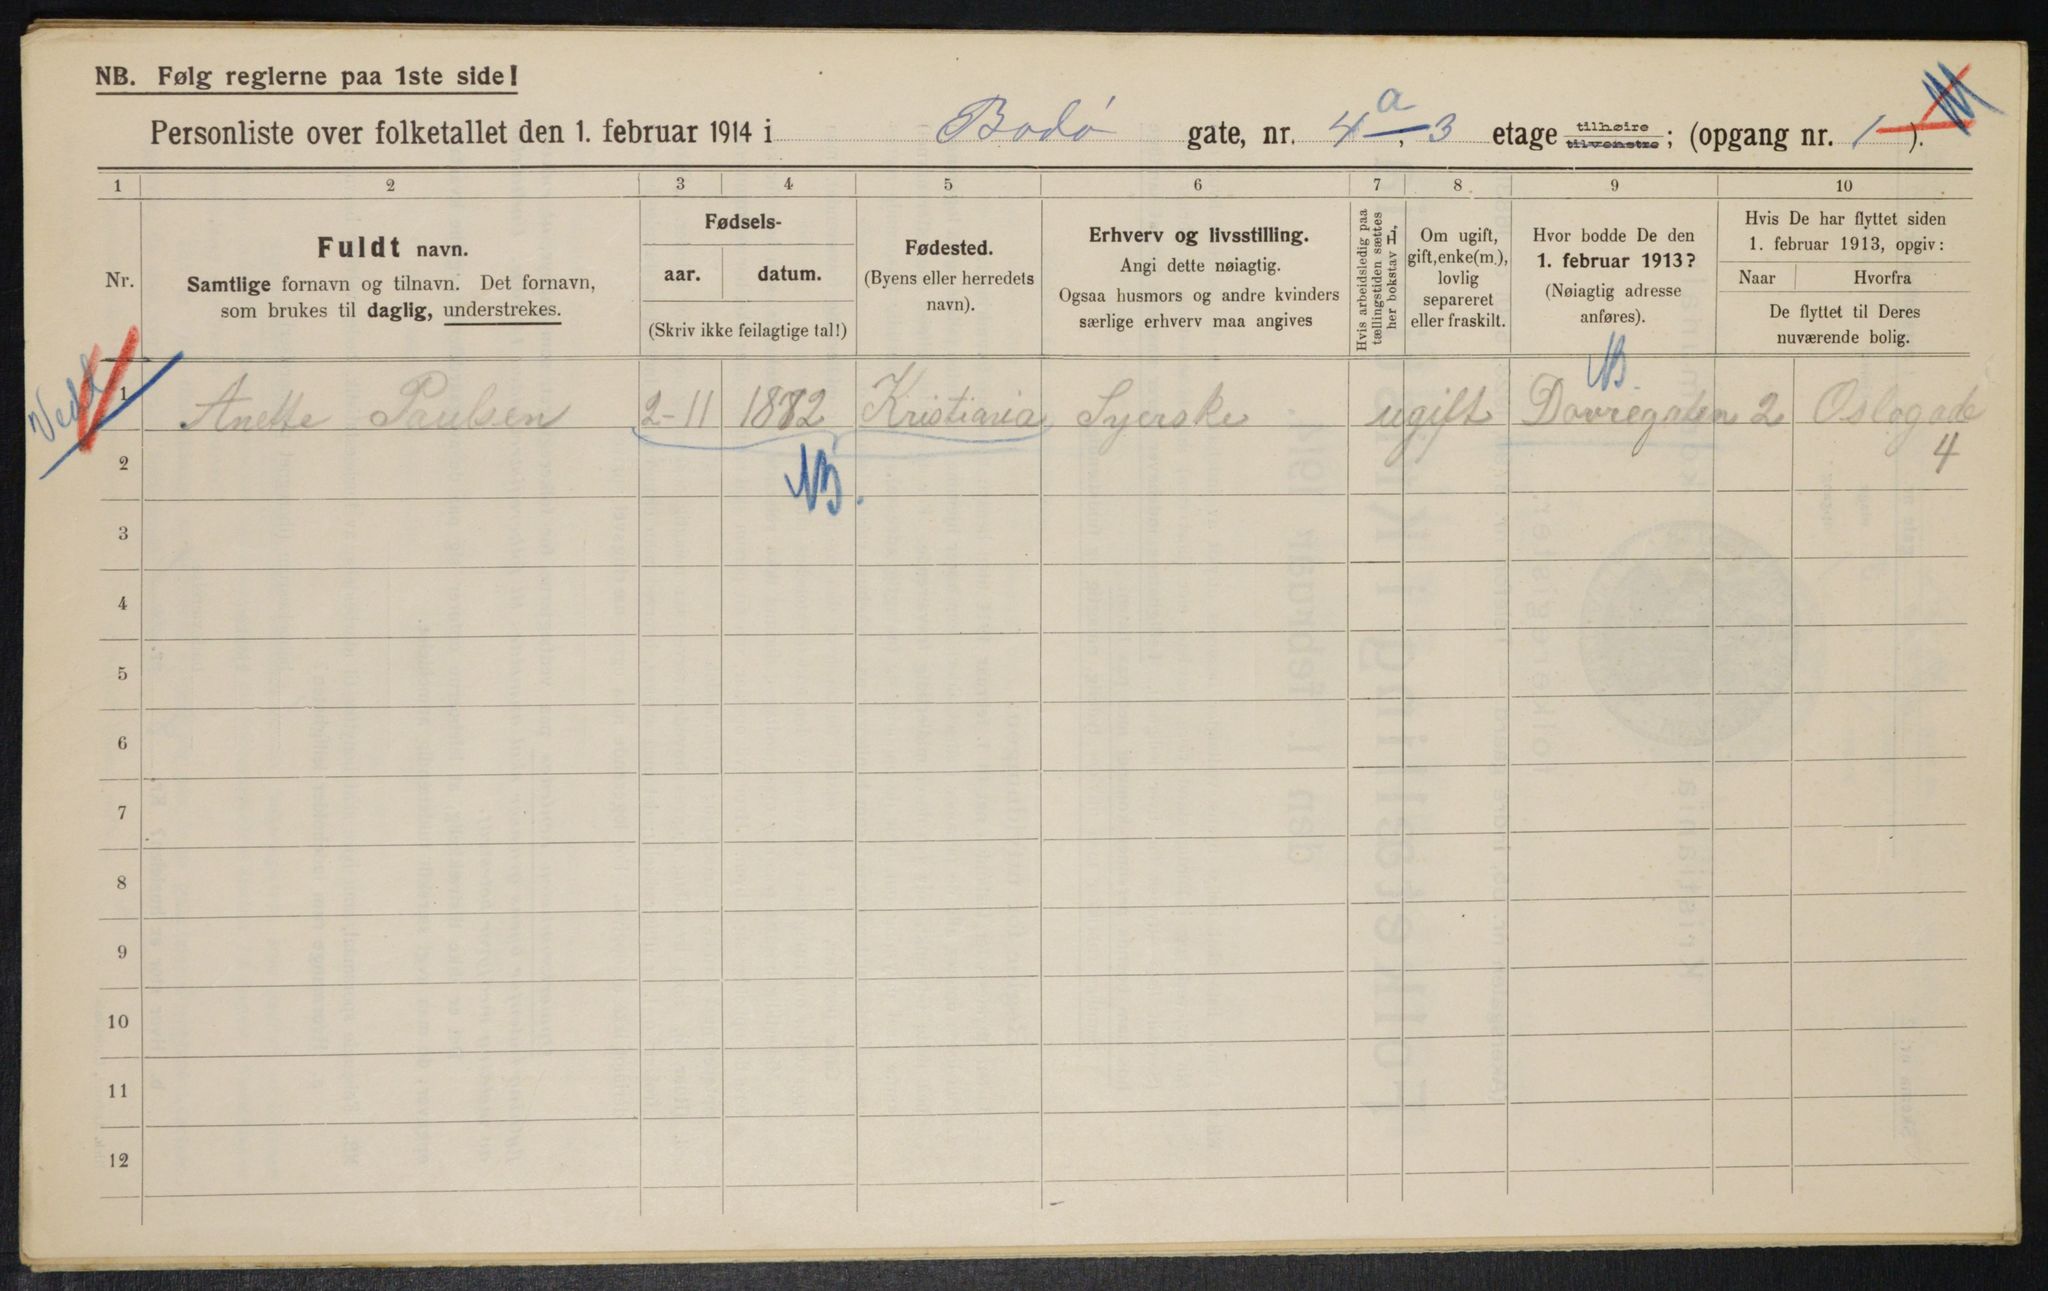 NB. Følg reglerne paa 1ste side!
Personliste over folketallet den 1. februar 1914 i Bodø gate, nr. 4a, 3 etage tilhøire tilvenstre; (opgang nr. 1).
1 2 3 4 5 6 7 8 9 10
Nr.
Fuldt navn.
Samtlige fornavn og tilnavn. Det fornavn,
som brukes til daglig, understrekes.
Fødsels-
aar. datum.
(Skriv ikke feilagtige tal!)
Fødested.
(Byens eller herredets
navn).
Erhverv og livsstilling.
Angi dette nøiagtig.
Ogsaa husmors og andre kvinders
særlige erhverv maa angives
Hvis arbeidsledig paa
tællingstiden sættes
her bokstav L.
Om ugift,
gift, enke(m.),
lovlig
separeret
eller fraskilt.
Hvor bodde De den
1. februar 1913?
(Nøiagtig adresse
anføres).
Hvis De har flyttet siden
1. februar 1913, opgiv:
Naar Hvorfra
De flyttet til Deres
nuværende bolig.
NB.
1 Anette Paulsen 2-11 1882 Kristiania Syerske ugift Dovregaten 2 Oslogade
4
NB.
2
3
4
5
6
7
8
9
10
11
12